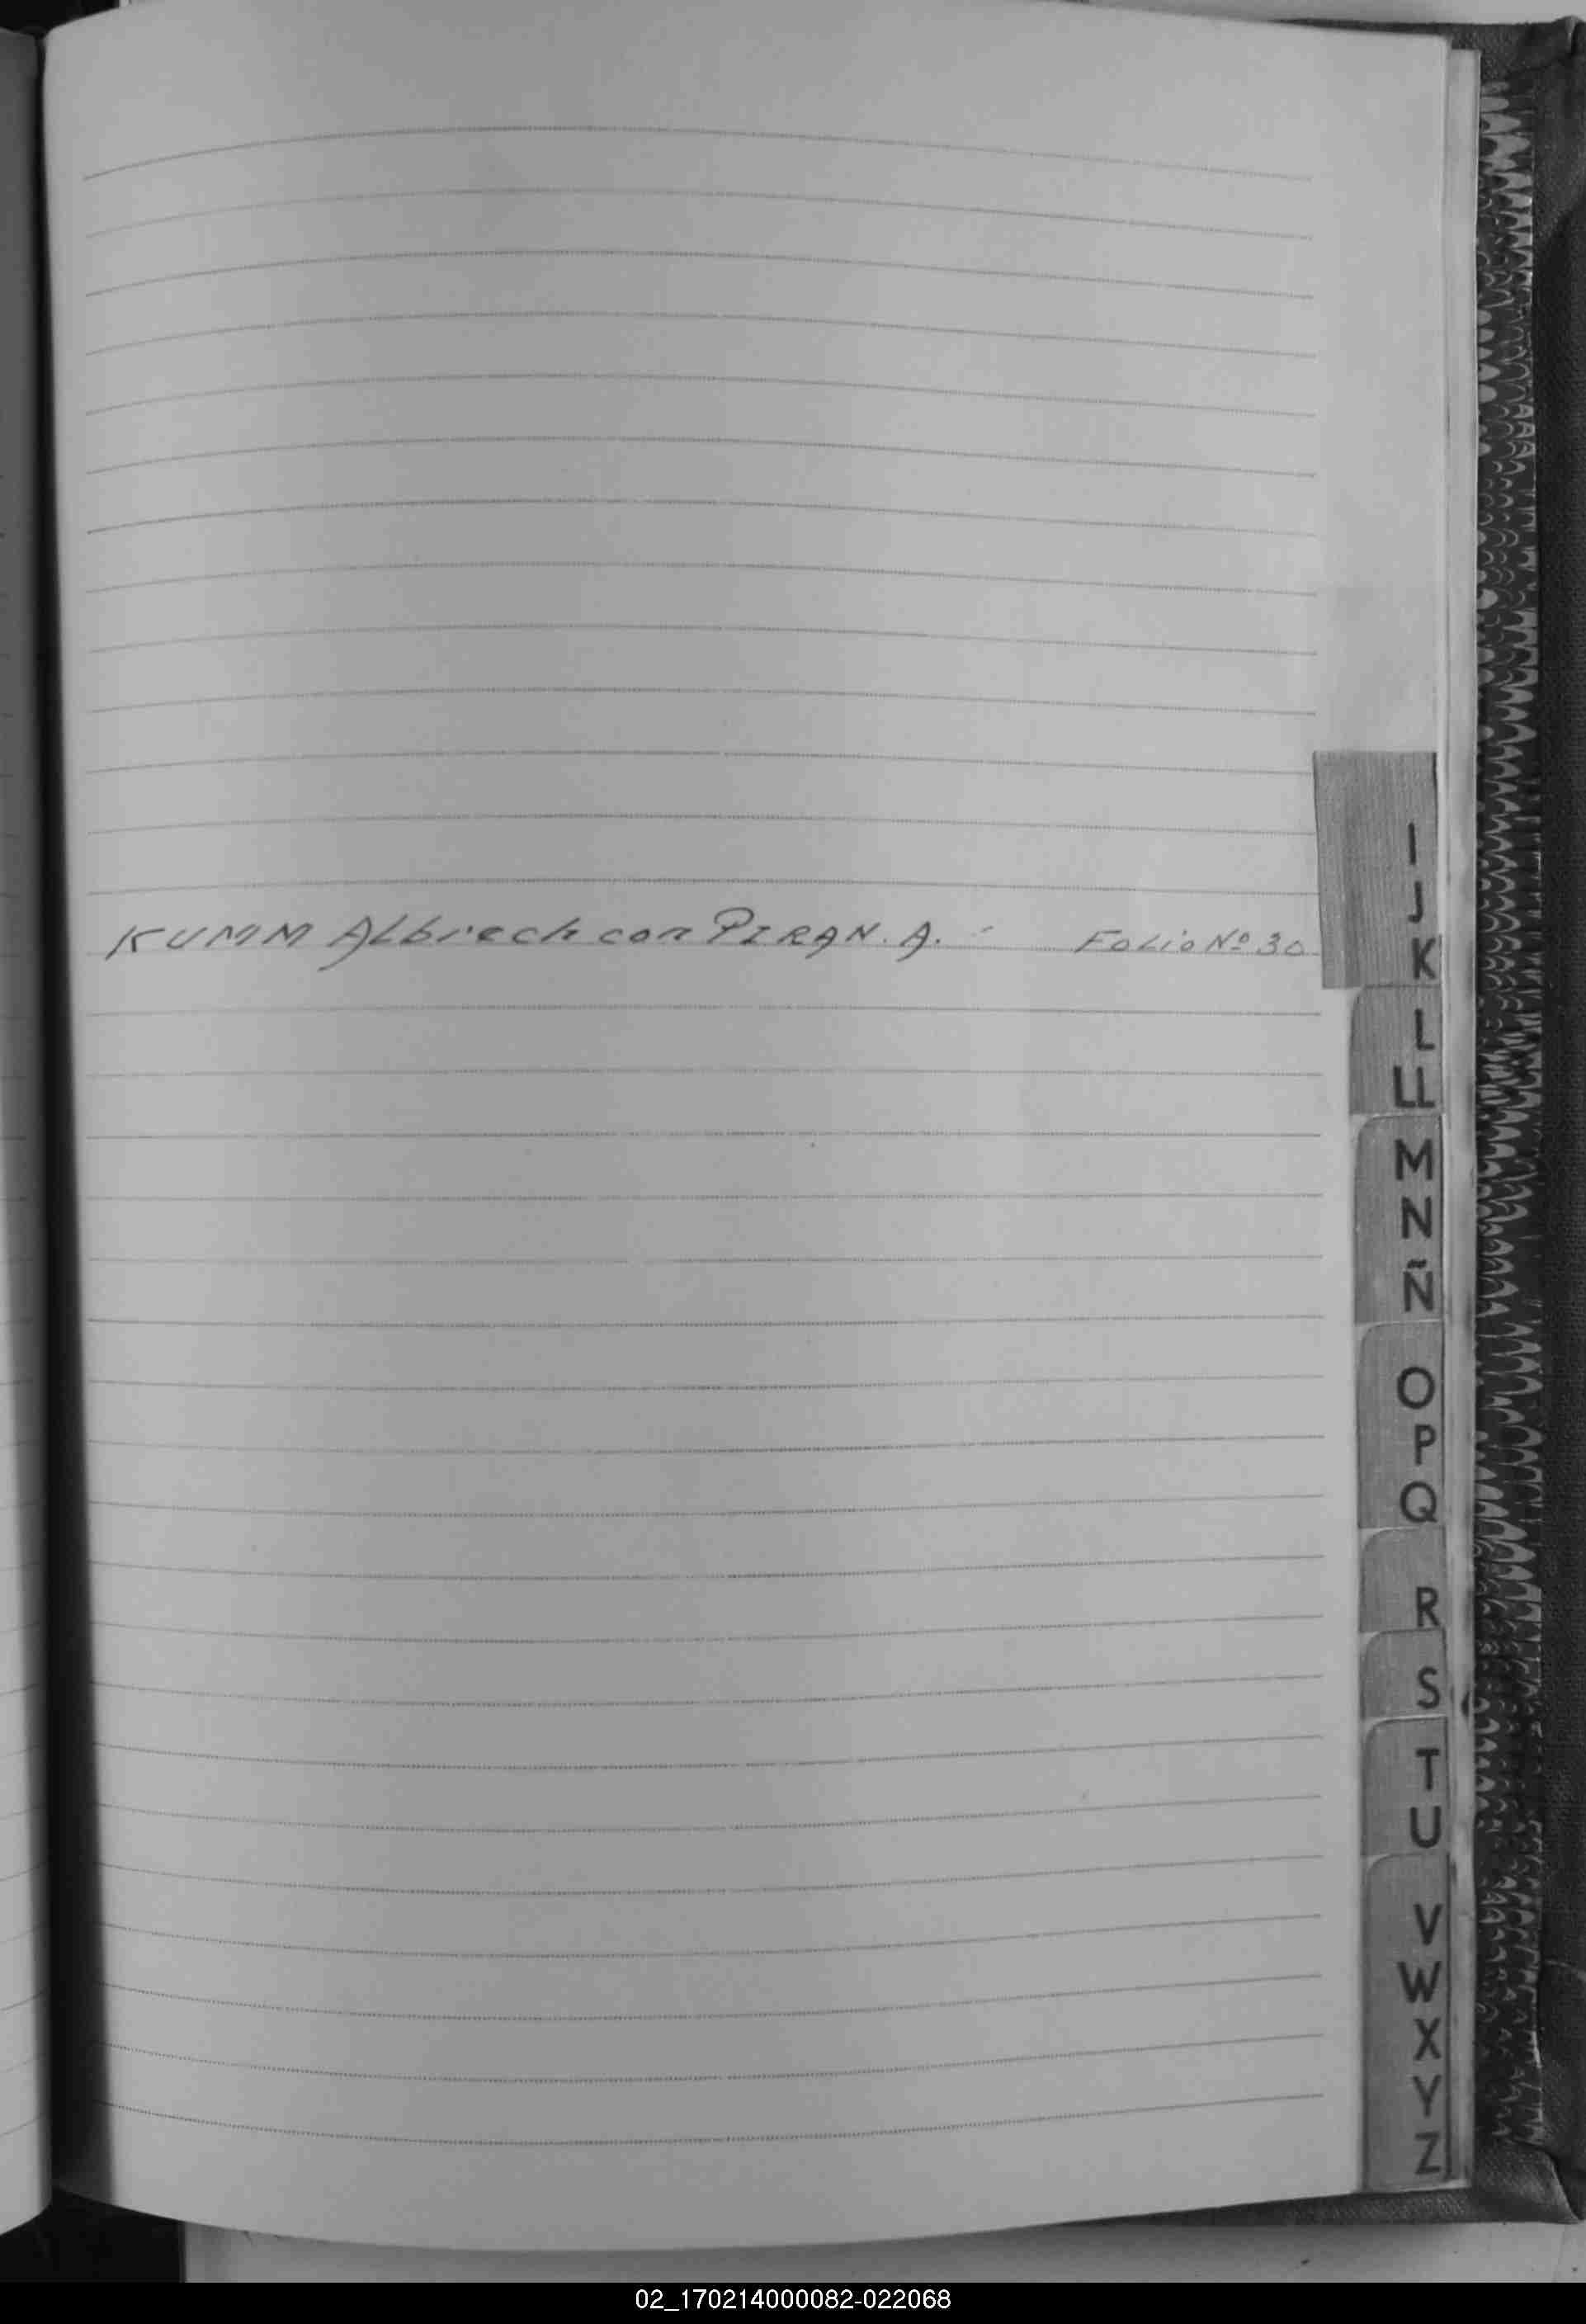 KUMM Albrech con PIRAN. A. - Folio Nº 30
I
J
K
L
LL
M
N
Ñ
O
P
Q
R
S
T
U
V
W
X
Y
Z
02_170214000082-022068